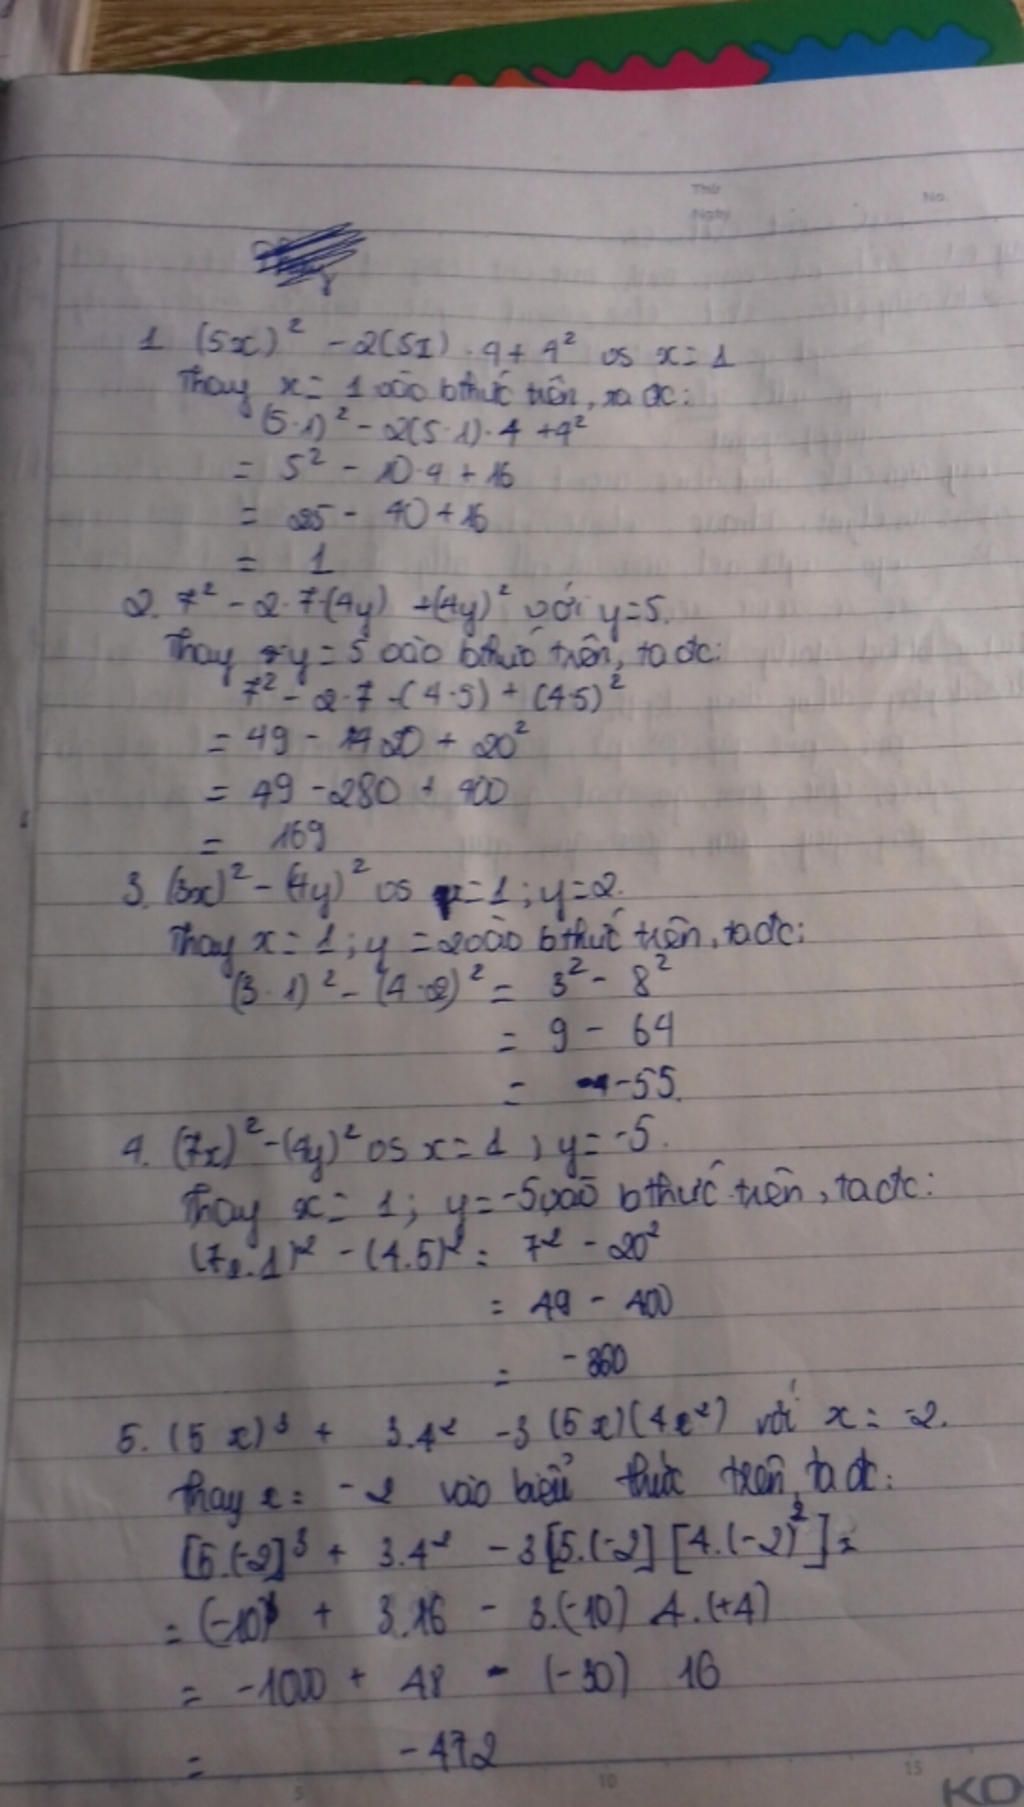 Thứ
Ngày
No.
1 (5x)² - 2(5x) . 4 + 4² vs x = 1
Thay x = 1 vào bthức trên, ta đc:
(5·1)² - 2(5·1)·4 + 4²
= 5² - 10·4 + 16
= 25 - 40 + 16
= 1
2. 7² - 2·7·(4y) + (4y)² với y=5.
Thay y = 5 vào bthức trên, ta đc:
7² - 2·7·(4·5) + (4·5)²
= 49 - 14 20 + 20²
= 49 - 280 + 400
= 169
3. (3x)² - (4y)² vs x=1 ; y=2.
Thay x = 1 ; y = 2 vào bthức trên, ta đc:
(3·1)² - (4·2)² = 3² - 8²
= 9 - 64
= -55.
4. (7x)² - (4y)² vs x = 1 ; y = -5.
Thay x = 1 ; y = -5 vào bthức trên, ta đc:
(7.1)² - (4.5)² = 7² - 20²
= 49 - 400
= -360
5. (5x)³ + 3.4² - 3(5x)(4x²) với x = -2.
thay x = -2 vào biểu thức trên, ta đc:
[5.(-2]³ + 3.4² - 3[5.(-2] [4.(-2)²] =
= (-10)³ + 3.16 - 3.(-10) 4.(+4)
= -1000 + 48 - (-30) 16
= -472
5 10 15
KO